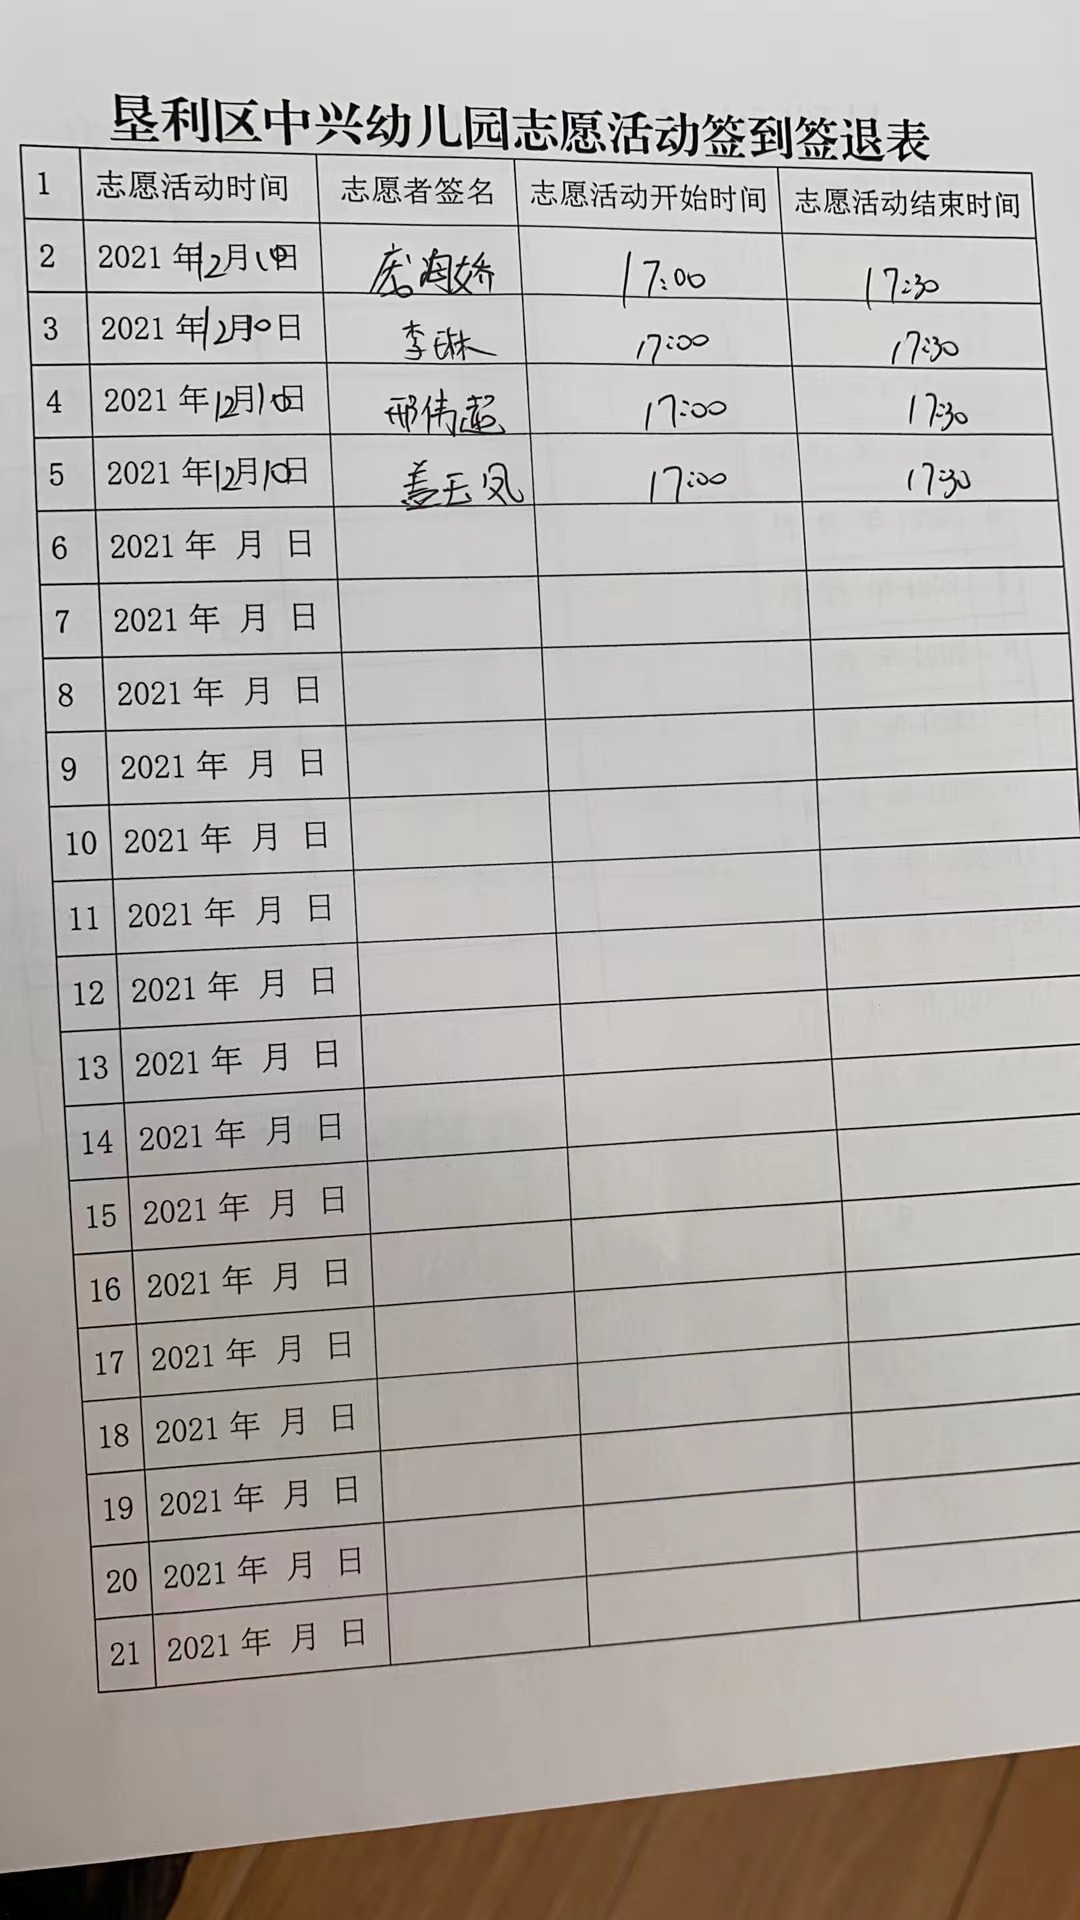 垦利区中兴幼儿园志愿活动签到签退表
1 志愿活动时间 志愿者签名 志愿活动开始时间 志愿活动结束时间
2 2021年12月10日 庞海娇 17:00 17:30
3 2021年12月10日 李琳 17:00 17:30
4 2021年12月10日 邢伟超 17:00 17:30
5 2021年12月10日 盖玉凤 17:00 17:30
6 2021年 月 日
7 2021年 月 日
8 2021年 月 日
9 2021年 月 日
10 2021年 月 日
11 2021年 月 日
12 2021年 月 日
13 2021年 月 日
14 2021年 月 日
15 2021年 月 日
16 2021年 月 日
17 2021年 月 日
18 2021年 月 日
19 2021年 月 日
20 2021年 月 日
21 2021年 月 日